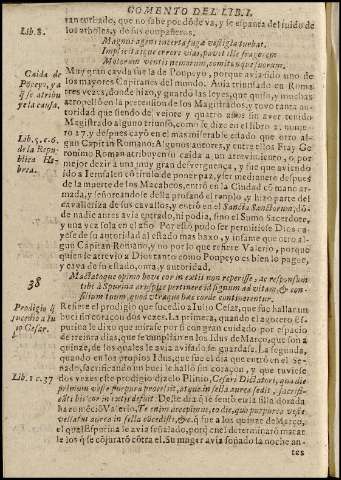 COMENTO DEL LIB. I.
tan turbado, que no sabe por dõde va, y se espanta del ruido de
Lib. 8.
los arboles, y de sus compañeros,
Magnus agens incerta fuga vestigia turbat.
Implicitasque errore vias, pavet ille fragorem
Motorum ventis nemorum, comitumque suorum.
Caida de Põpeyo, y a q̃ se atribuye la causa.
Muy gran cayda fue la de Pompeyo, porque aviendo uno de
los mayores Capitanes del mundo. Avia triunfado en Roma
tres vezes, donde hizo, y guardò las leyes, que quiso, y muchas
atropellò en la pretension de los Magistrados, y tuvo tanta autoridad
que siendo de veinte y quatro años sin aver tenido
Magistrado alguno triunfò, como se dize en el libro 2. numero
27. y despues cayò en el mas miserable estado que otro algun
Lib. 5. c. 6. de la Republica Hebrea.
Capitan Romano: Algunos autores, y entre ellos Fray Geronimo
Roman atribuyen su caida a un atrevimiento, o, por
mejor dezir a una muy gran desverguença, y fue que aviendo
ido a Ierusalen cõ titulo de poner paz, y ser medianero despues
de la muerte de los Macabeos, entrò en la Ciudad cõ mano armada,
y señoreandose della profanò el templo, y hizo parte del
cavalleriza de sus cavallos, y entrò en el Sancta Sanctorum, dõde
nadie antes avia entrado, ni podia, sino el Sumo Sacerdote,
y una vez sola en el año. Por esto pudo ser permitiesse Dios cayesse
de su autoridad al estado mas baxo, y infame que otro algun
Capitan Romano, y no por lo que refiere Valerio, porque
quien se atreviò a Dios tanto como Pompeyo es bien lo pague,
y cayga de su estado, oma, y autoridad.
38
Mactatoque opimo bove cor in extis non reperisse, ac responsum
tibi à Spurina aruspice pertinere id signum ad vitam, & consilium
tuum, quod utraque haec corde continerentur.
Prodigio q̃ sucedio a Iulio Cesar.
Refiere el prodigio que sucediò a Iulio Cesar, que fue hallar un
buei sin coraçon dos vezes. La primera, quando el aguorero Espurina
le dixo que mirasse por si con gran cuidado por espacio
de treinta dias, que se cumplian en los Idus de Março, que son a
quinze, de los quales le avia avisado se guardasse. La segunda,
quando en los propios Idus, que fue el dia que entrò en el Senado,
sacrificando un buei le hallò sin coraçon, y que tuviesse
Lib. 11. c. 37
dos vezes este prodigio dizelo Plinio, Cesari Dictatori, qua die
primum veste purpurea processit, atque in sella aurea sedit, sacrificanti
bis cor in extis defuit. Deste dia q̃ se sentò en la silla dorada
haze mẽcion Valerio, Te enim accepimus, eo die, quo purpurea veste
velatus aurea in sella consedisti, &c. q̃ fue a los quinze de Março,
el qual Espurina le avia señalado, porq̃ en el determinarõ matarle
los q̃ se cõjurarõ cõtra el. Su muger avia soñado la noche an-
tes